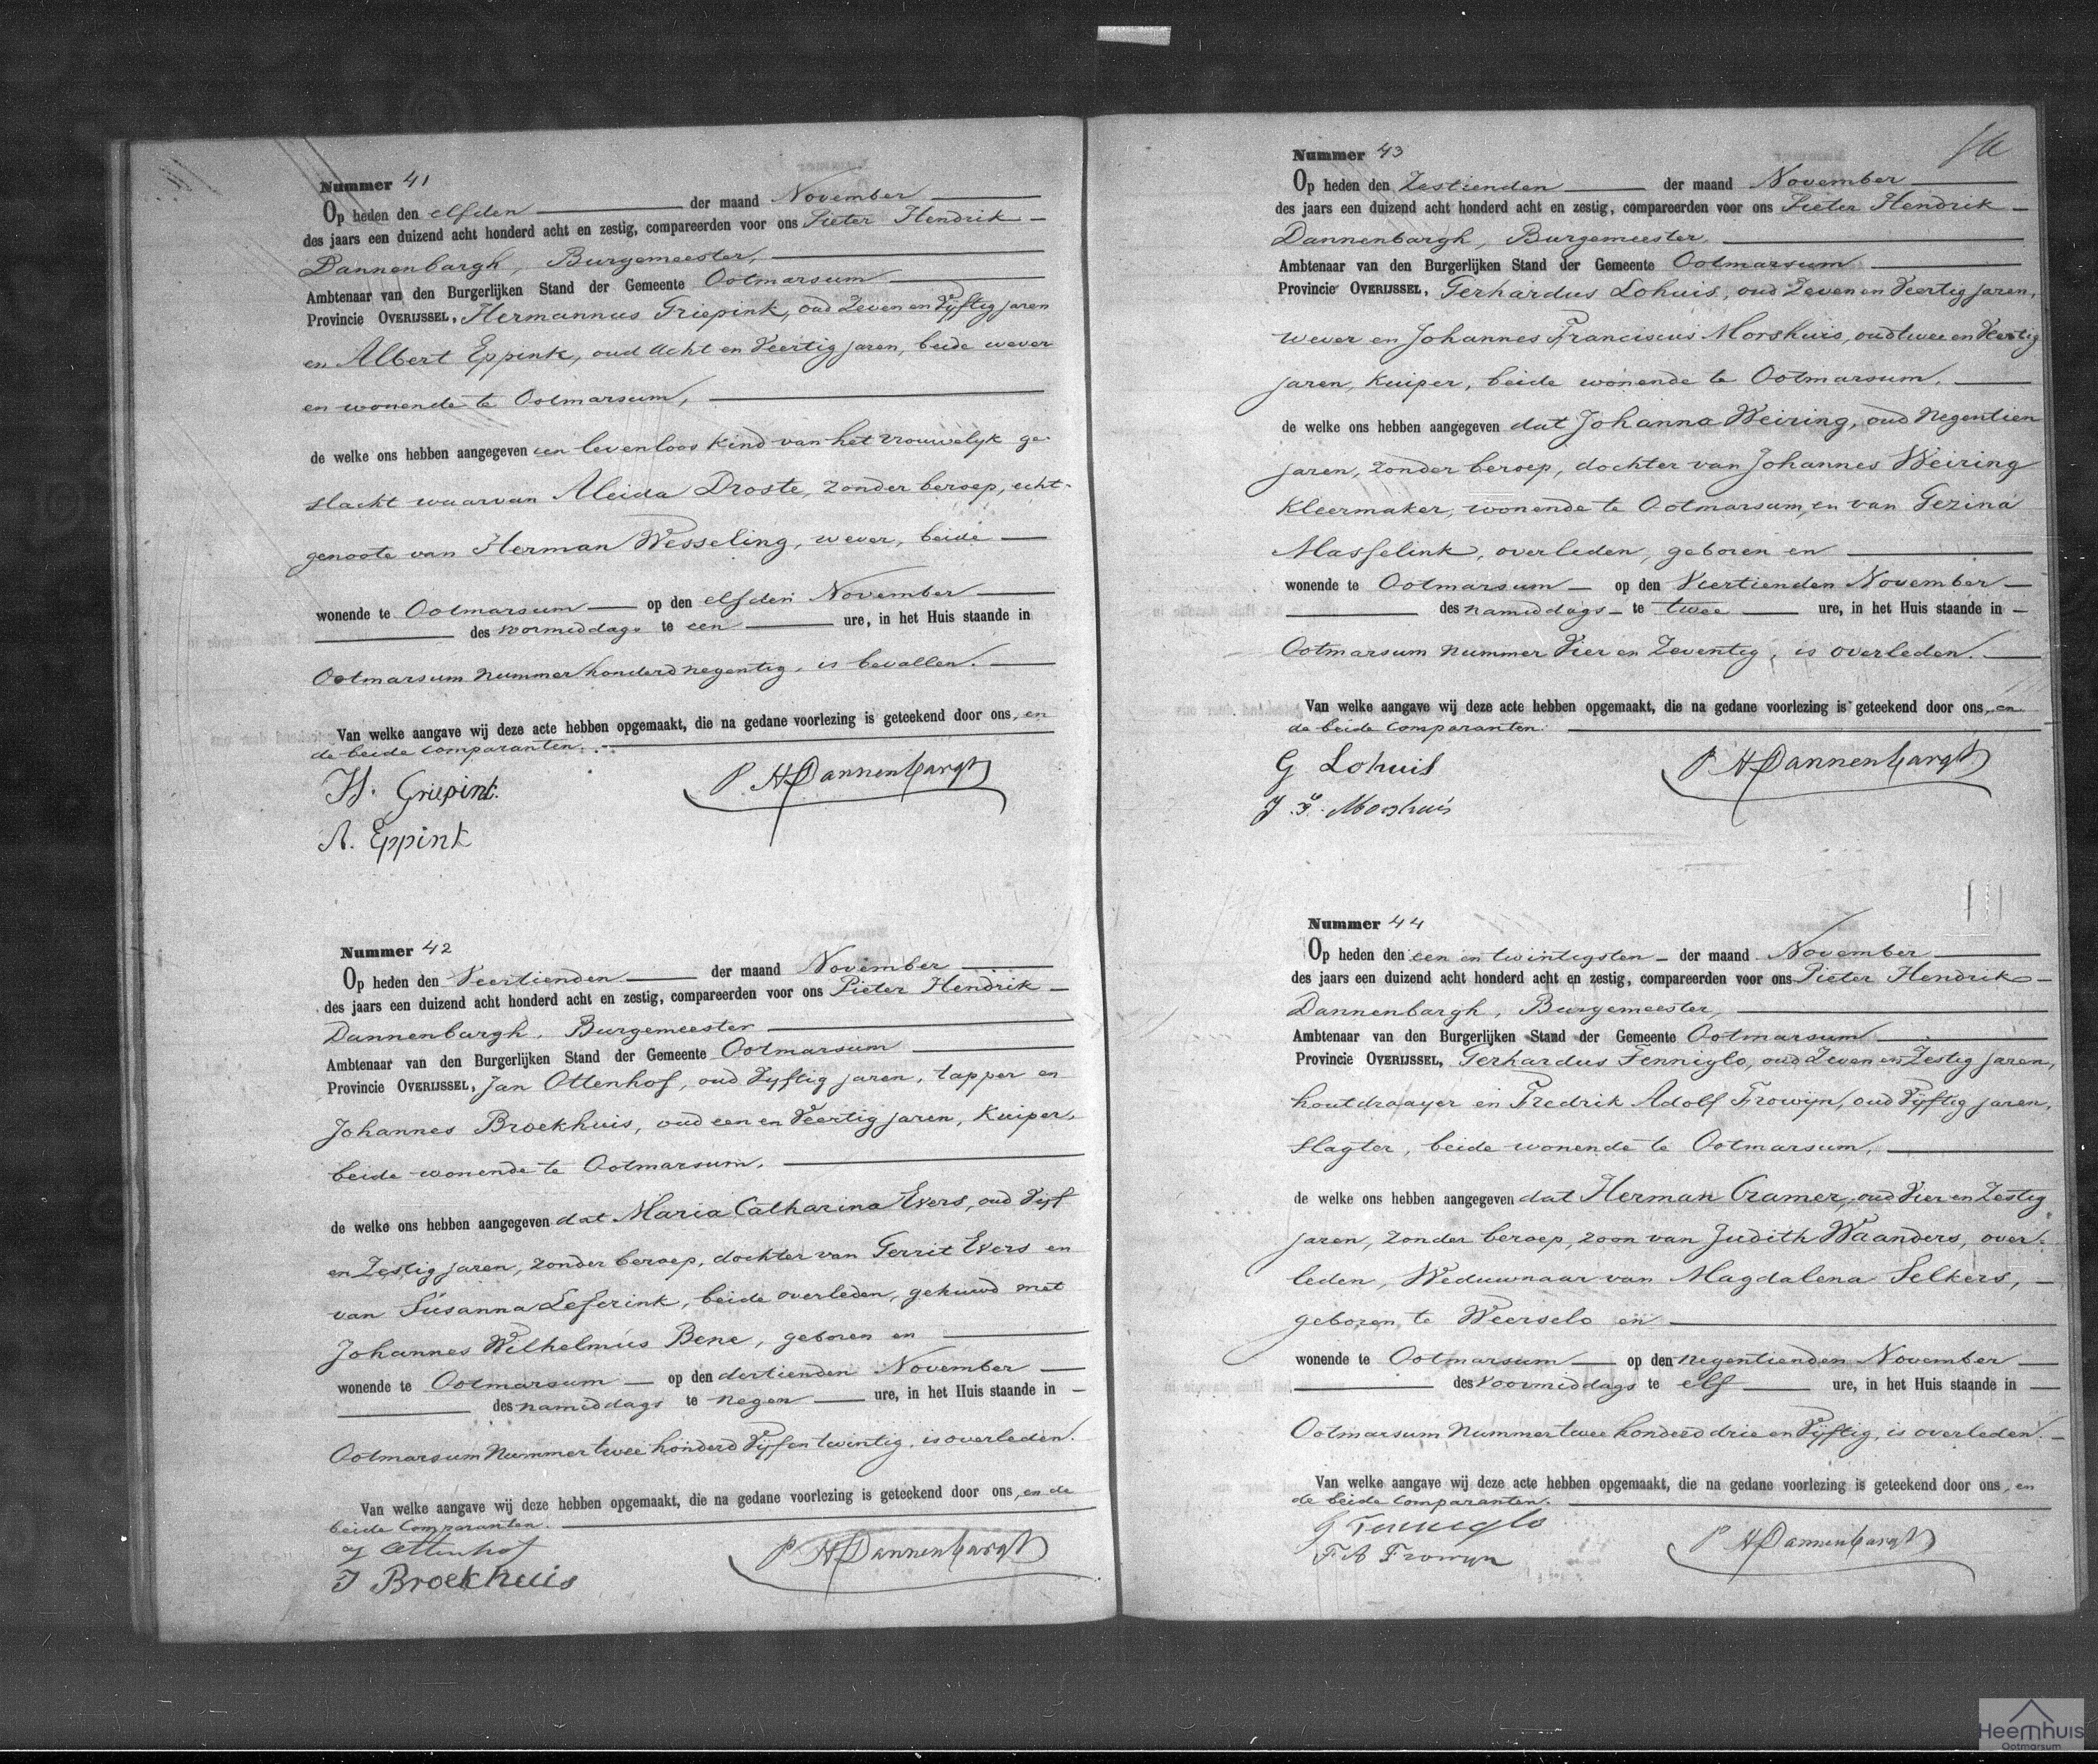 Nummer 41
Op heden den elfden der maand November
des jaars een duizend acht honderd acht en zestig, compareerden voor ons Pieter Hendrik
Dannenbargh, Burgemeester,
Ambtenaar van den Burgerlijken Stand der Gemeente Ootmarsum
Provincie OVERIJSSEL, Hermannus Griepink, oud Zeven en Vijftig jaren
en Albert Eppink, oud Acht en Veertig jaren, beide wever
en wonende te Ootmarsum,
de welke ons hebben aangegeven een levenloos kind van het vrouwelyk ge-
slacht waarvan Aleida Droste, zonder beroep, echt-
genoote van Herman Wesseling, wever, beide
wonende te Ootmarsum op den elfden November
des voormiddags te een ure, in het Huis staande in
Ootmarsum nummer honderd negentig, is bevallen.
Van welke aangave wij deze acte hebben opgemaakt, die na gedane voorlezing is geteekend door ons, en
de beide comparanten.
H. Griepink
P H Dannenbargh
A. Eppink
Nummer 42
Op heden den Veertienden der maand November
des jaars een duizend acht honderd acht en zestig, compareerden voor ons Pieter Hendrik
Dannenbargh, Burgemeester
Ambtenaar van den Burgerlijken Stand der Gemeente Ootmarsum
Provincie OVERIJSSEL, Jan Ottenhof, oud Vyftig jaren, tapper en
Johannes Broekhuis, oud een en Veertig jaren, Kuiper,
beide wonende te Ootmarsum,
de welke ons hebben aangegeven dat Maria Catharina Evers, oud Vyf
en Zestig jaren, zonder beroep, dochter van Gerrit Evers en
van Susanna Leferink, beide overleden, gehuwd met
Johannes Wilhelmus Bene, geboren en
wonende te Ootmarsum op den dertienden November
des namiddags te negen ure, in het Huis staande in
Ootmarsum Nummer twee honderd Vijf en twintig, is overleden.
Van welke aangave wij deze hebben opgemaakt, die na gedane voorlezing is geteekend door ons, en de
beide Comparanten.
J Ottenhof
P H Dannenbargh
J Broekhuis
Nummer 43
Op heden den Zestienden der maand November
des jaars een duizend acht honderd acht en zestig, compareerden voor ons Pieter Hendrik
Dannenbargh, Burgemeester,
Ambtenaar van den Burgerlijken Stand der Gemeente Ootmarsum
Provincie OVERIJSSEL, Gerhardus Lohuis, oud Zeven en Veertig jaren,
wever en Johannes Franciscus Morshuis, oud twee en Veertig
jaren, Kuiper, beide wonende te Ootmarsum,
de welke ons hebben aangegeven dat Johanna Weiring, oud Negentien
jaren, zonder beroep, dochter van Johannes Weiring
Kleermaker, wonende te Ootmarsum, en van Gezina
Masselink, overleden, geboren en
wonende te Ootmarsum op den Veertienden November
des namiddags te twee ure, in het Huis staande in
Ootmarsum nummer Vier en Zeventig, is overleden.
Van welke aangave wij deze acte hebben opgemaakt, die na gedane voorlezing is geteekend door ons, en
de beide comparanten.
G Lohuis
P H Dannenbargh
J. F. Morshuis
Nummer 44
Op heden den een en twintigsten der maand November
des jaars een duizend acht honderd acht en zestig, compareerden voor ons Pieter Hendrik
Dannenbargh, Burgemeester,
Ambtenaar van den Burgerlijken Stand der Gemeente Ootmarsum
Provincie OVERIJSSEL, Gerhardus Fenniglo, oud Zeven en Zestig jaren,
houtdraayer en Fredrik Adolf Frowijn, oud Vijftig jaren,
slagter, beide wonende te Ootmarsum,
de welke ons hebben aangegeven dat Herman Cramer, oud Vier en Zestig
jaren, zonder beroep, zoon van Judith Waanders, over-
leden, Weduwnaar van Magdalena Selkers,
geboren te Weerselo en
wonende te Ootmarsum op den negentienden November
des Voormiddags te elf ure, in het Huis staande in
Ootmarsum Nummer twee honderd drie en Vijftig, is overleden.
Van welke aangave wij deze acte hebben opgemaakt, die na gedane voorlezing is geteekend door ons, en
de beide comparanten.
G Fenniglo
P H Dannenbargh
F A Frowyn
Heemhuis
Ootmarsum